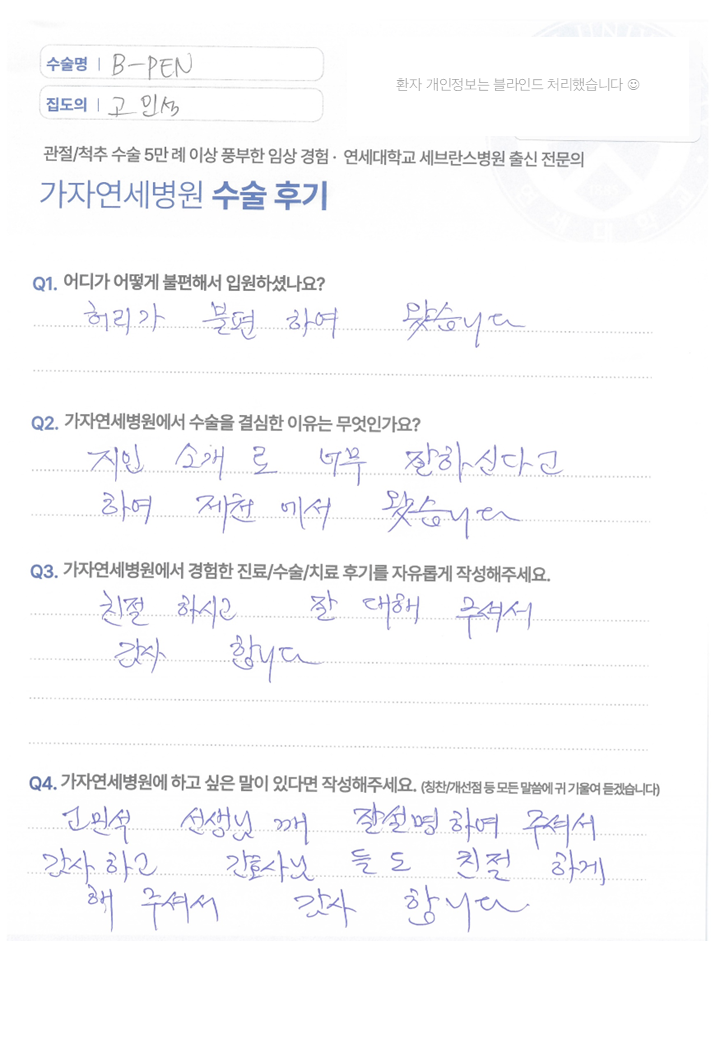 수술명 | B-PEN
환자 개인정보는 블라인드 처리했습니다 ☺
집도의 | 고민석
관절/척추 수술 5만 례 이상 풍부한 임상 경험 · 연세대학교 세브란스병원 출신 전문의
가자연세병원 수술 후기
Q1. 어디가 어떻게 불편해서 입원하셨나요?
허리가 불편 하여 왔습니다
Q2. 가자연세병원에서 수술을 결심한 이유는 무엇인가요?
지인 소개로 너무 잘하신다고
하여 제천에서 왔습니다
Q3. 가자연세병원에서 경험한 진료/수술/치료 후기를 자유롭게 작성해주세요.
친절 하시고 잘 대해 주셔서
감사 합니다
Q4. 가자연세병원에 하고 싶은 말이 있다면 작성해주세요. (칭찬/개선점 등 모든 말씀에 귀 기울여 듣겠습니다)
고민석 선생님 께 잘설명하여 주셔서
감사하고 간호사님 들도 친절 하게
해 주셔서 감사 합니다